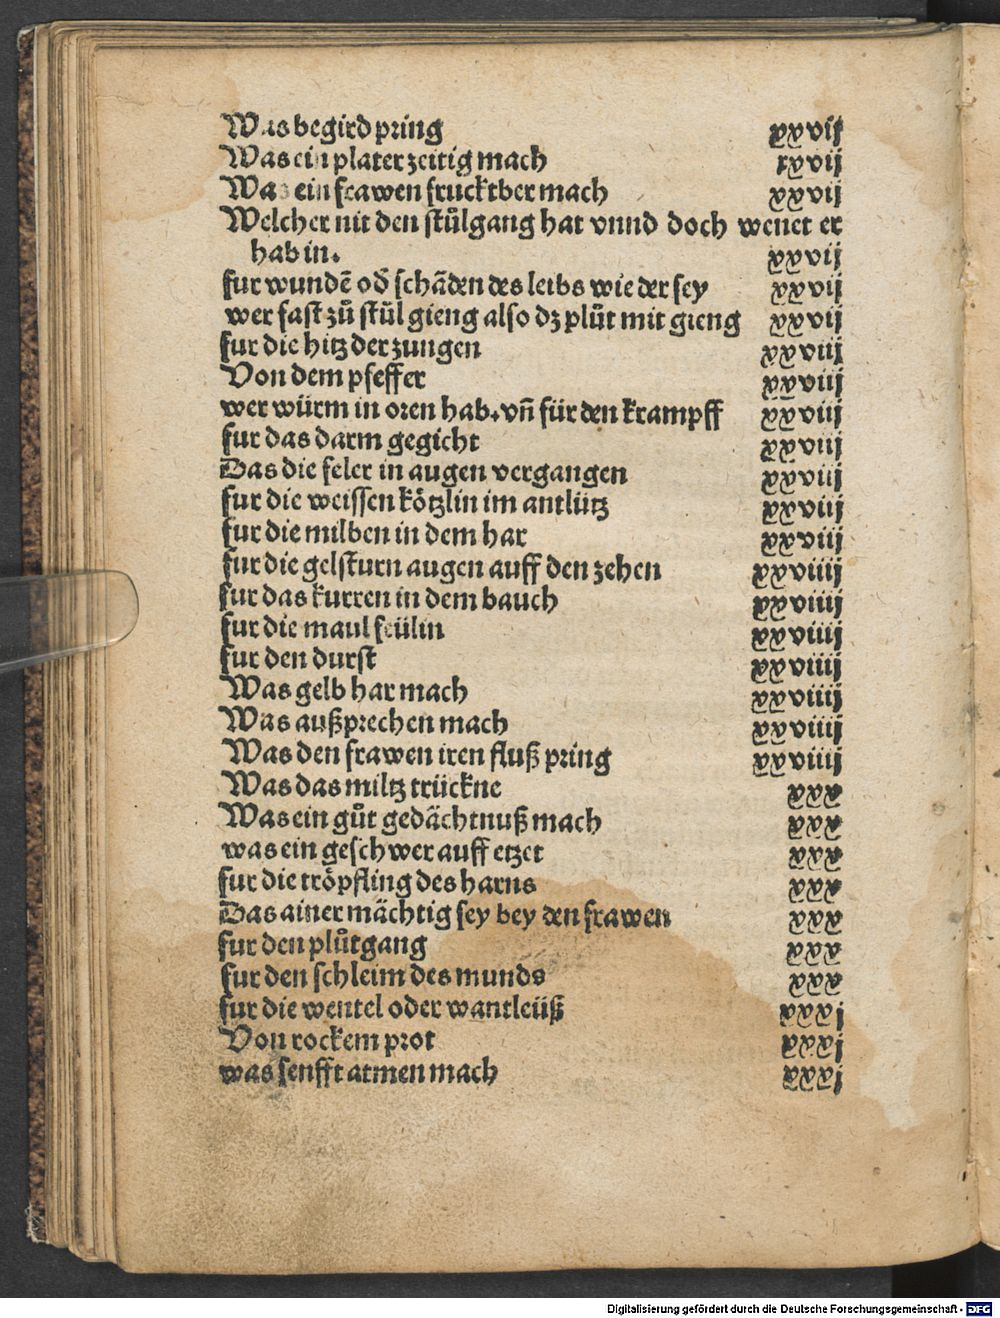 Was begird pring xxvij
Was ein plater zeitig mach xxvij
Was ein frawen fruchtber mach xxvij
Welcher nit den stůlgang hat vnnd doch wenet er
hab in. xxvij
fur wundē od̄ schāden des leibs wie der sey xxvij
wer fast zů stůl gieng also dz plůt mit gieng xxvij
fur die hitz der zungen xxviij
Von dem pfeffer xxviij
wer würm in oren hab. vñ für den krampff xxviij
fur das darm gegicht xxviij
Das die feler in augen vergangen xxviij
fur die weissen kötzlin im antlütz xxviij
fur die milben in dem har xxviij
fur die gelsturn augen auff den zehen xxviiij
fur das kurren in dem bauch xxviiij
fur die maul feülin xxviiij
fur den durst xxviiij
Was gelb har mach xxviiij
Was außprechen mach xxviiij
Was den frawen iren fluß pring xxviiij
Was das miltz trückne xxx
Was ein gůt gedächtnuß mach xxx
was ein geschwer auff etzet xxx
fur die tröpfling des harns xxx
Das ainer mächtig sey bey den frawen xxx
fur den plůtgang xxx
fur den schleim des munds xxx
fur die wentel oder wantleüß xxxj
Von rockem prot xxxj
was senfft atmen mach xxxj
Digitalisierung gefördert durch die Deutsche Forschungsgemeinschaft - DFG